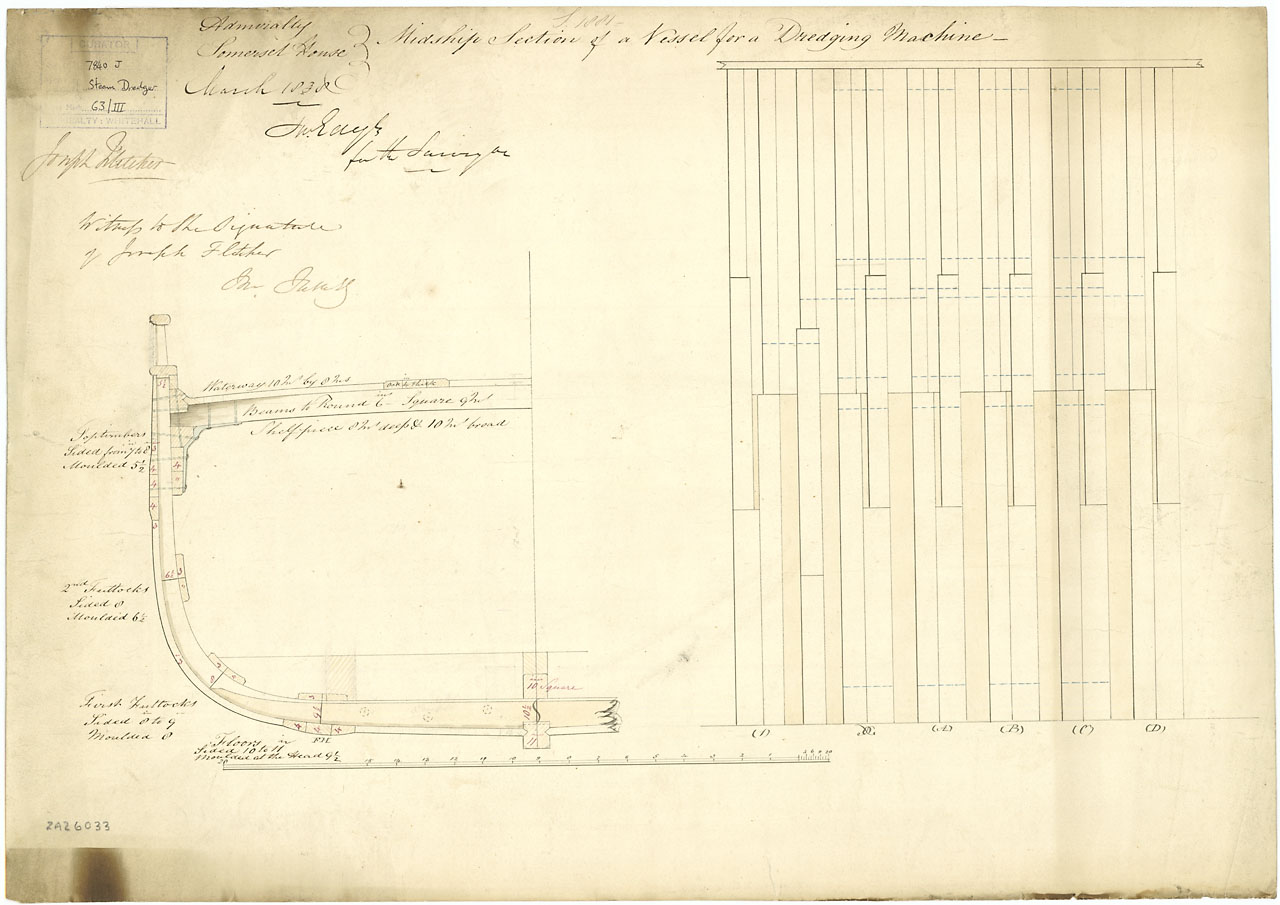 Admiralty
Somerset House
March 1838
Midship Section of a Vessel for a Dredging Machine
CURATOR
7840 J
Steam Dredger
63/III
ALTY: WHITEHALL
Jno Edye
for the Surveyor
Joseph Fletcher
Witness to the Signature
of Joseph Fletcher
Waterway 10 Ins by 8 Ins
Beams to Round 6 in Square 9 Ins
Shelfpiece 8 Ins deep & 10 Ins broad
Toptimbers
Sided from 7 to 8
Moulded 5½
2nd Futtocks
Sided 8
Moulded 6½
First Futtocks
Sided 8 to 9
Moulded 8
Floors
Sided 10 to 11 in
Moulded at the Head 9½
10 Square
10½
11
(1)
(A)
(B)
(C)
(D)
ZAZ6033